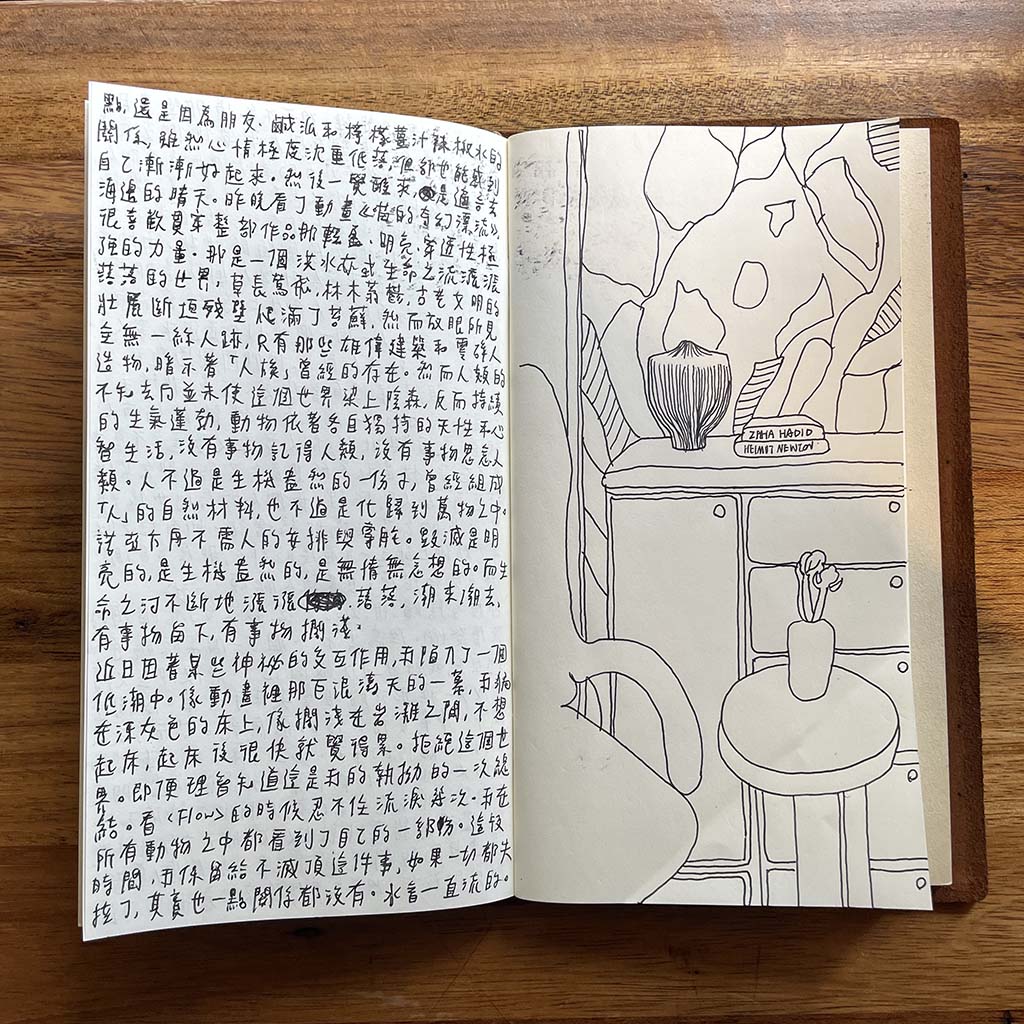 點,還是因為朋友、鹹派和檸檬薑汁辣椒水的
關係,雖然心情極度沈重低落,但卻也能感到
自己漸漸好起來。然後一覺醒來,是適合去
海邊的晴天。昨晚看了動畫《喵的奇幻漂流》,
很喜歡貫穿整部作品那輕盈、明亮、穿透性極
強的力量。那是一個洪水抑或生命之流漲漲
落落的世界,草長鶯飛,林木蓊鬱,古老文明的
壯麗斷垣殘壁爬滿了苔蘚,然而放眼所見
全無一絲人跡,只有那些雄偉建築和零碎人
造物,暗示著「人族」曾經的存在。然而人類的
不知去向並未使這個世界染上陰森,反而持續
的生氣蓬勃,動物依著各自獨特的天性和心
智生活,沒有事物記得人類,沒有事物思念人
類。人不過是生機盎然的一份子,曾經組成
「人」的自然材料,也不過是化歸到萬物之中。
諾亞方舟不需人的安排與掌舵。毀滅是明
亮的,是生機盎然的,是無情無念想的。而生
命之河不斷地漲漲落落,潮來潮去,
有事物留下,有事物擱淺。
近日因著某些神秘的交互作用,再陷入了一個
低潮中。像動畫裡那巨浪滿天的一幕,我躺
在深灰色的床上,像擱淺在岩灘之間,不想
起床,起床後很快就覺得累。拒絕這個世
界。即便理智知道這是我的執拗的一次總
結。看《Flow》的時候忍不住流淚幾次。我在
所有動物之中都看到了自己的一部份。這段
時間,我保留給不滅頂這件事,如果一切都失
控了,其實也一點關係都沒有。水會一直流的。
ZAHA HADID
HELMUT NEWTON